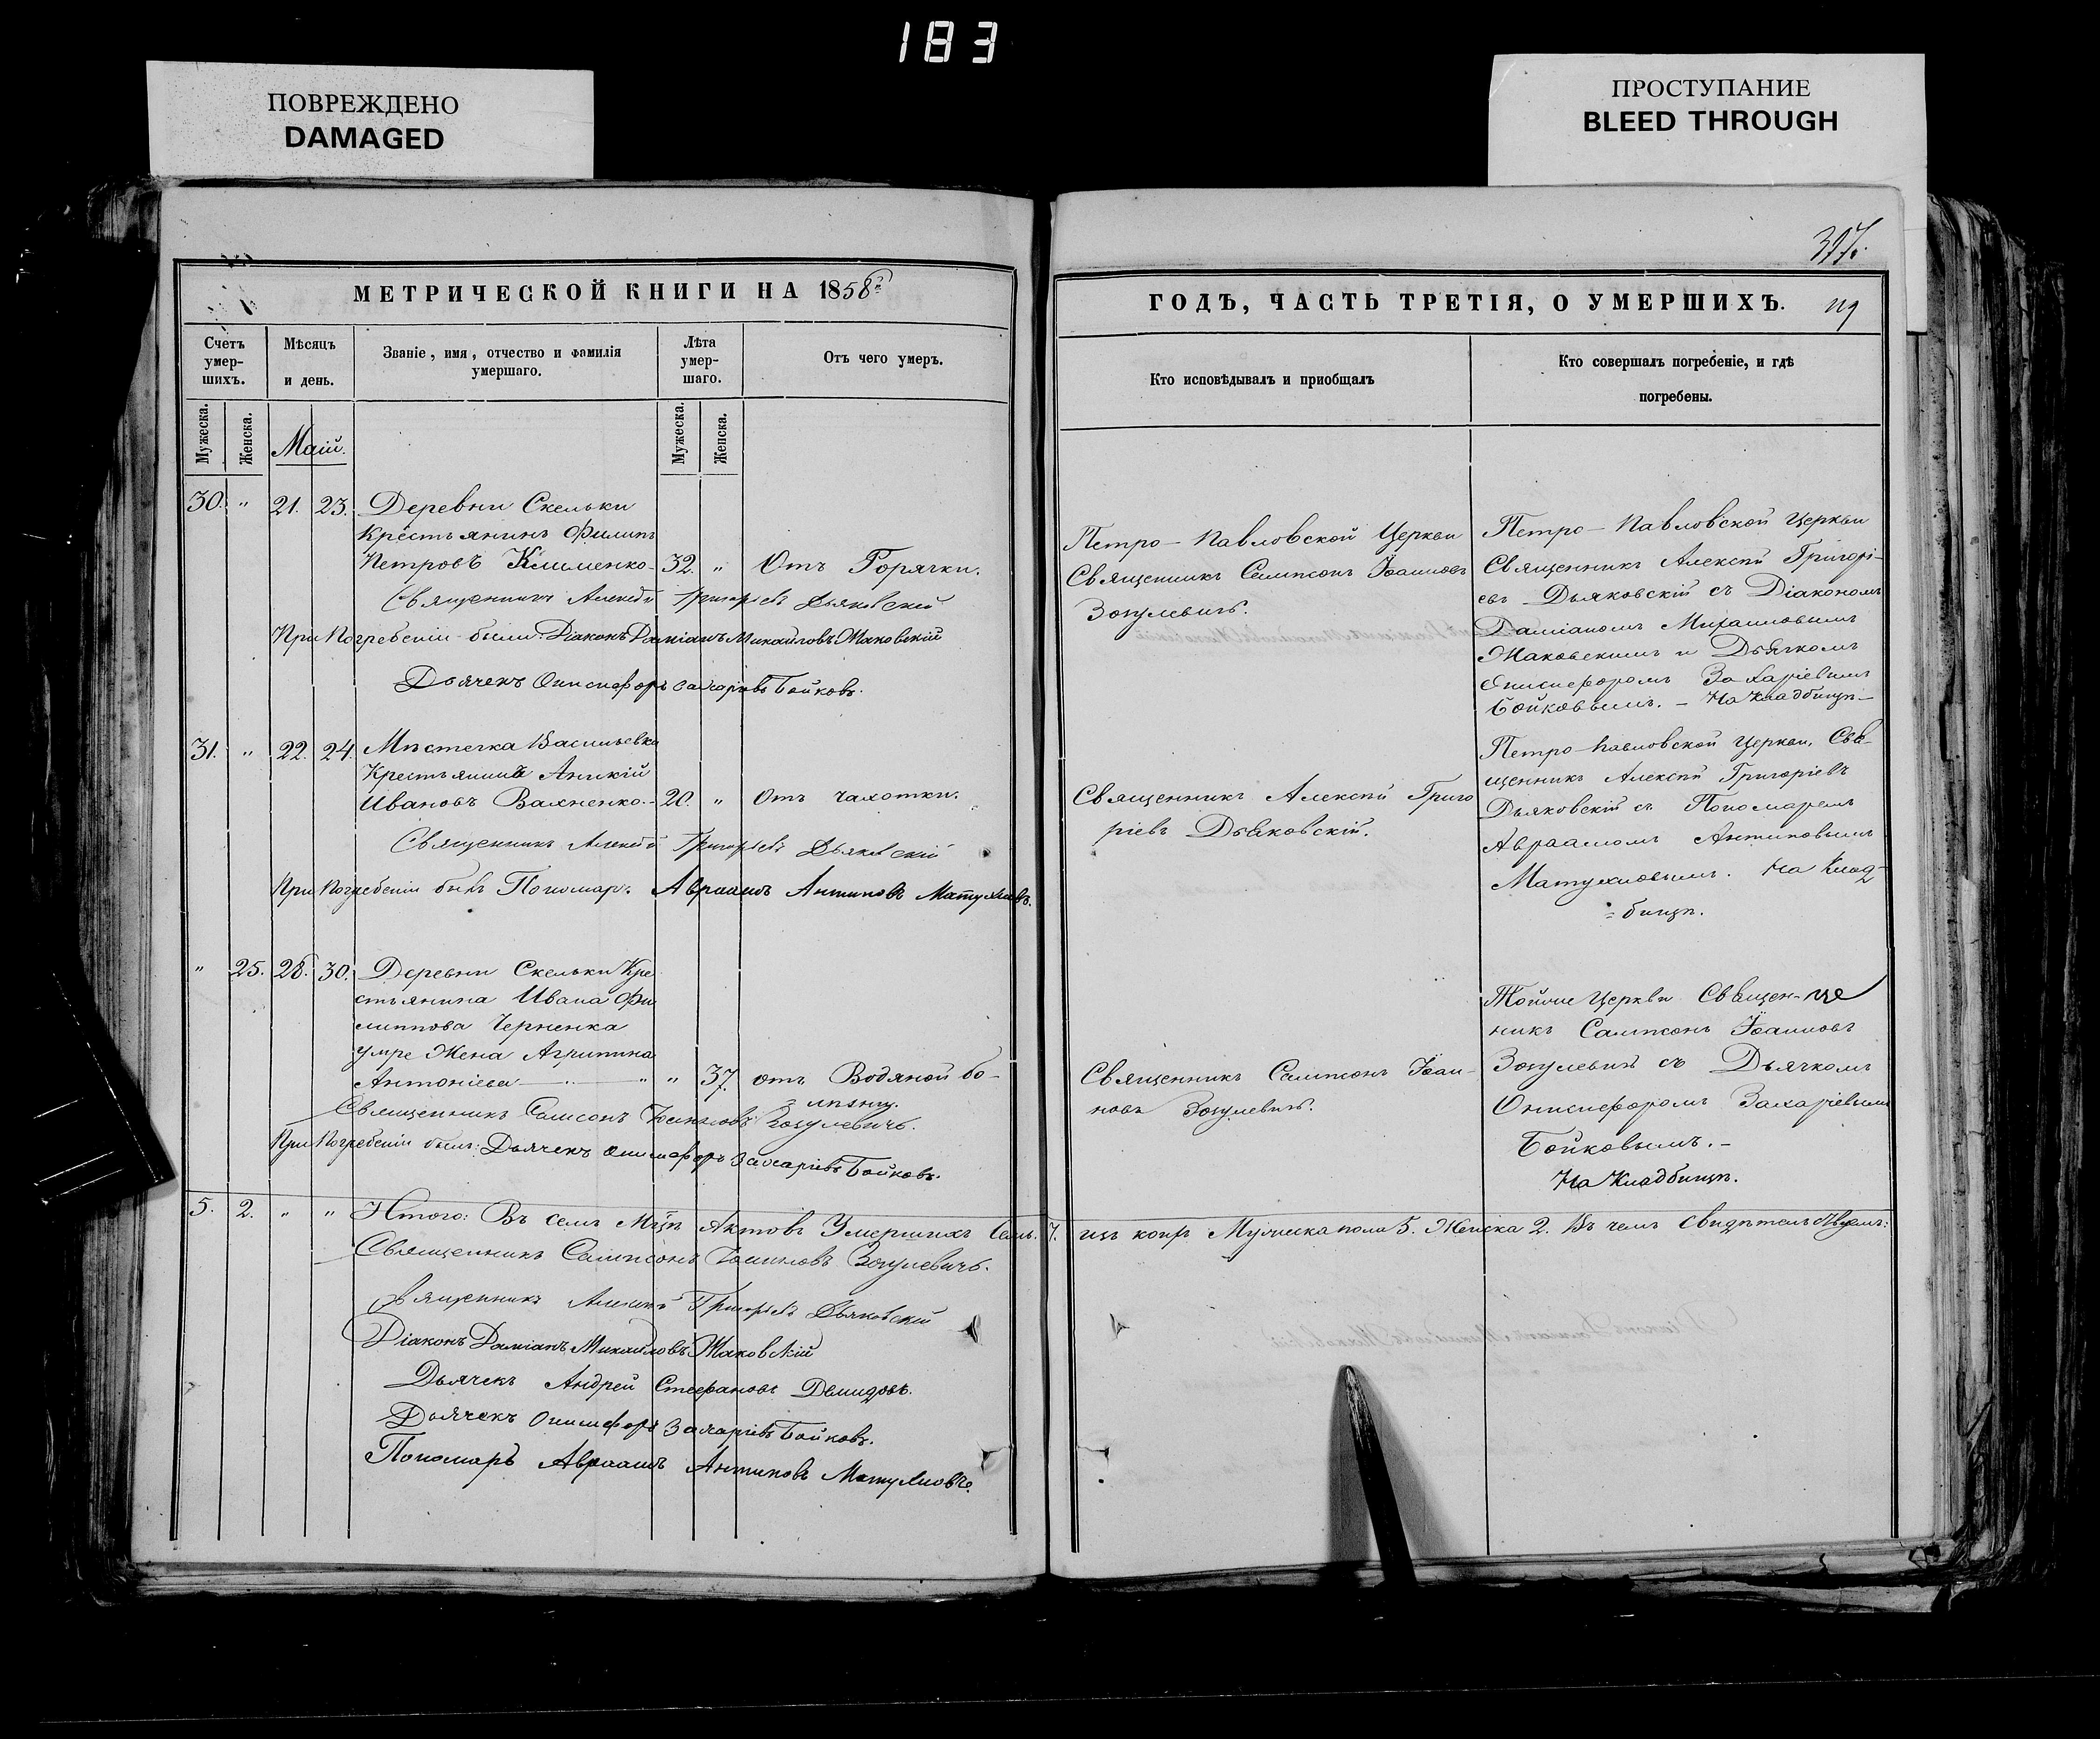 183
ПОВРЕЖДЕНО
DAMAGED
ПРОСТУПАНИЕ
BLEED THROUGH
МЕТРИЧЕСКОЙ КНИГИ НА 1858й
Счетъ умер-шихъ.
Мѣсяцъ и день.
Званіе, имя, отчество и фамилія умершаго.
Лѣта умер-шаго.
Отъ чего умеръ.
Мужеска.
Женска.
Маій.
Мужеска.
Женска.
30. " 21. 23. Деревни Скельки
Крестьянинъ Филипъ
Петровъ Клименко- 32. " Отъ Горячки.
Священникъ Алексѣй Григорьевъ Дьяковскій
При Погребеніи были: Діаконъ Даміанъ Михайловъ Жаковскій
Дьячекъ Онисифоръ Захаріевъ Бойковъ.
31. " 22. 24. Мѣстечка Васильевки
Крестьянинъ Аникій
Ивановъ Вахненко.- 20. " Отъ чахотки.
Священникъ Алексѣй Григорьевъ Дьяковскій
При Погребеніи былъ Пономарь Авраамъ Антиповъ Матухновъ.
" 25. 28. 30. Деревни Скельки Кре
стьянина Ивана Фи
липпова Черненка
умре Жена Агрипина
Антоніева " " 37 отъ Водяной бо-
лѣзни.
Священникъ Сампсонъ Іоанновъ Зозулевичъ.
При Погребеніи былъ: Дьячекъ Онисифоръ Захаріевъ Бойковъ.
5. 2. " " Итого: Въ семъ Мцѣ Актовъ Умершихъ Семь. 7.
Священникъ Сампсонъ Іоанновъ Зозулевичъ.
Священникъ Алексѣй Григорьевъ Дьяковскій
Діаконъ Даміанъ Михайловъ Жаковскій
Дьячекъ Андрей Стефановъ Демидовъ.
Дьячекъ Онисифоръ Захаріевъ Бойковъ.
Пономарь Авраамъ Антиповъ Матухновъ.
397.
ГОДЪ, ЧАСТЬ ТРЕТІЯ, О УМЕРШИХЪ.
Кто исповѣдывалъ и пріобщалъ
Кто совершалъ погребеніе, и гдѣ
погребены.
Петро-Павловской Церкви
Священникъ Сампсонъ Іоанновъ
Зозулевичъ.
Петро-Павловской Церкви
Священникъ Алексѣй Григорі-
евъ Дьяковскій съ Діакономъ
Даміаномъ Михаиловымъ
Жаковскимъ и Дьячкомъ
Онисифоромъ Захаріевымъ
Бойковымъ. - На Кладбищѣ-
Священникъ Алексѣй Григо
ріевъ Дьяковскій.
Петро-Павловской Церкви, Свя-
щенникъ Алексѣй Григоріевъ
Дьяковскій съ Пономаремъ
Авраамомъ Антиповымъ
Матухновымъ. На Клад-
бищѣ.
Священникъ Сампсонъ Іоан-
новъ Зозулевичъ.
Тойже Церкви Священ-
никъ Сампсонъ Іоанновъ
Зозулевичъ съ Дьячкомъ
Онисифоромъ Захаріевымъ
Бойковымъ. -
На Кладбищѣ.
изъ коихъ Мужеска пола 5. Женска 2. Въ чемъ свидѣтельствуемъ: